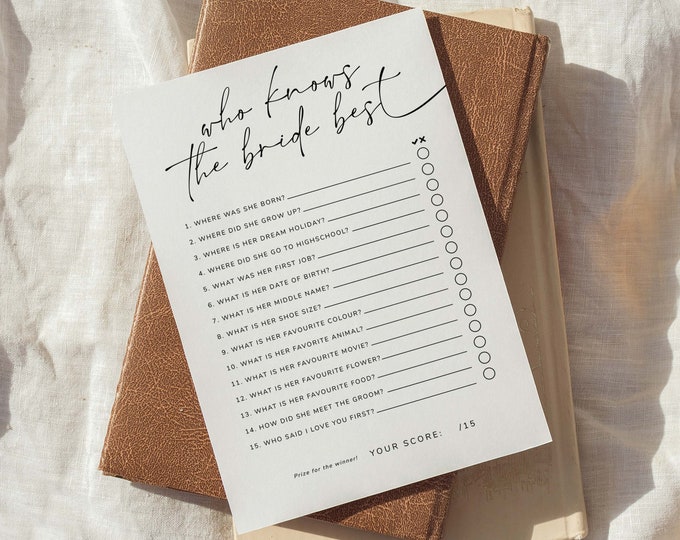 who knows
the bride best
✓X
1. WHERE WAS SHE BORN?
2. WHERE DID SHE GROW UP?
3. WHERE IS HER DREAM HOLIDAY?
4. WHERE DID SHE GO TO HIGHSCHOOL?
5. WHAT WAS HER FIRST JOB?
6. WHAT IS HER DATE OF BIRTH?
7. WHAT IS HER MIDDLE NAME?
8. WHAT IS HER SHOE SIZE?
9. WHAT IS HER FAVOURITE COLOUR?
10. WHAT IS HER FAVORITE ANIMAL?
11. WHAT IS HER FAVOURITE MOVIE?
12. WHAT IS HER FAVOURITE FLOWER?
13. WHAT IS HER FAVOURITE FOOD?
14. HOW DID SHE MEET THE GROOM?
15. WHO SAID I LOVE YOU FIRST?
Prize for the winner! YOUR SCORE: /15